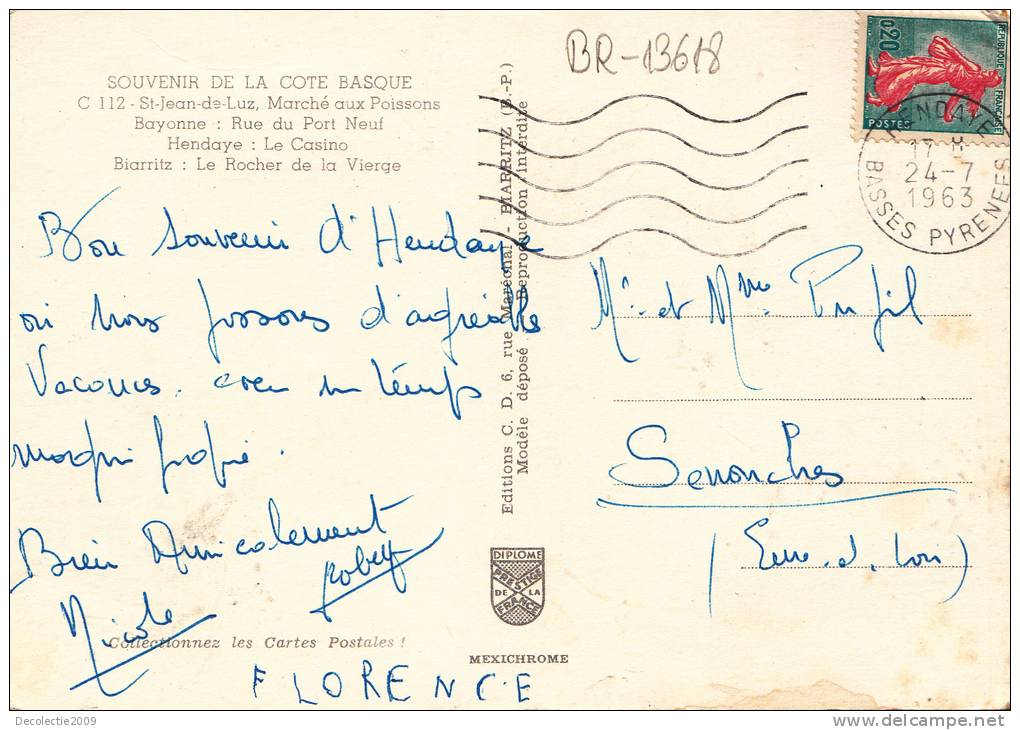 BR-13618
SOUVENIR DE LA COTE BASQUE
C 112 - St-Jean-de-Luz, Marché aux Poissons
Bayonne : Rue du Port Neuf
Hendaye : Le Casino
Biarritz : Le Rocher de la Vierge
REPUBLIQUE FRANÇAISE
0,20
POSTES
HENDAYE
17 H
24-7
1963
BASSES PYRENEES
Bon souvenir d'Hendaye
où nous passons d'agréables
Vacances. avec un temps
magnifique.
Bien Amicalement
Nicole
Robert
FLORENCE
Collectionnez les Cartes Postales !
Editions C. D. 6, rue Maréchal - BIARRITZ (B.-P.)
Modèle déposé Reproduction interdite
DIPLOME
PRESTIGE
DE LA
FRANCE
MEXICHROME
Mr. et Mme
Senonches
(Eure. d. Loir)
Decolectie2009
www.delcampe.net